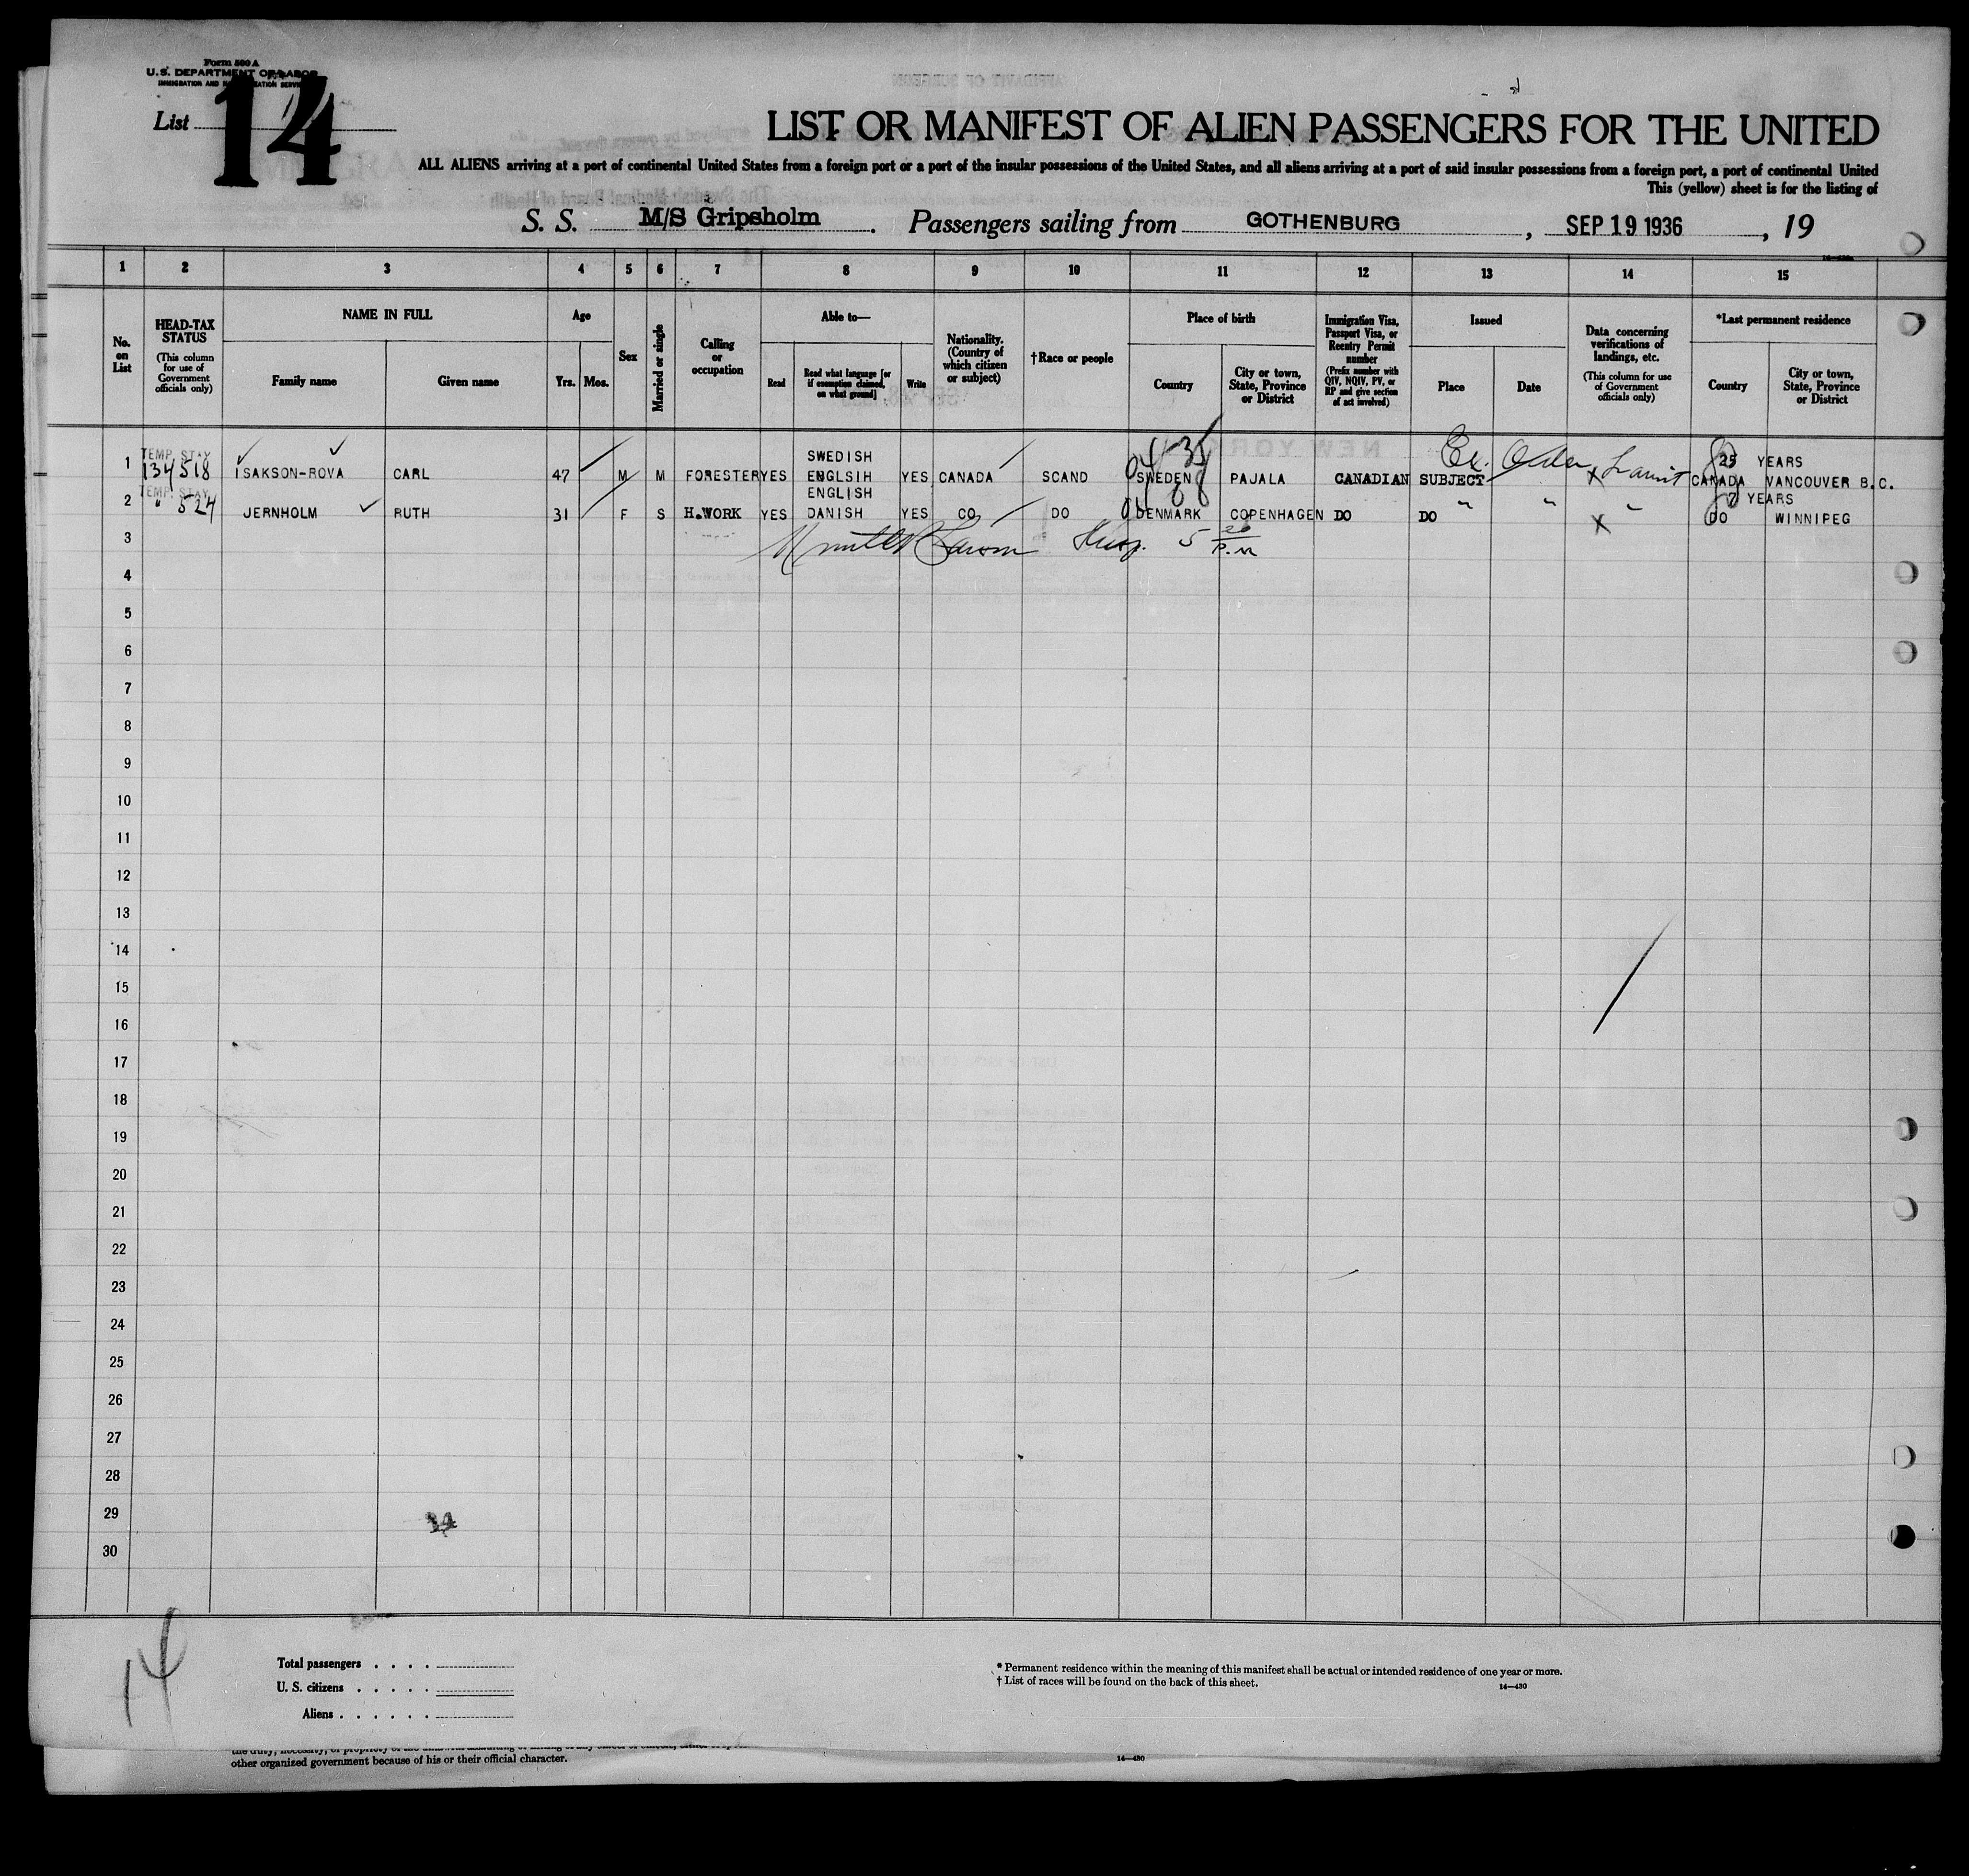 Form 500 A
U. S. DEPARTMENT OF LABOR
IMMIGRATION AND NATURALIZATION SERVICE
List 14
LIST OR MANIFEST OF ALIEN PASSENGERS FOR THE UNITED
ALL ALIENS arriving at a port of continental United States from a foreign port or a port of the insular possessions of the United States, and all aliens arriving at a port of said insular possessions from a foreign port, a port of continental United
This (yellow) sheet is for the listing of
S. S. M/S Gripsholm. Passengers sailing from GOTHENBURG, SEP 19 1936, 19
1 2 3 4 5 6 7 8 9 10 11 12 13 14 15
No. on List
HEAD-TAX STATUS
(This column for use of Government officials only)
NAME IN FULL
Family name
Given name
Age
Yrs.
Mos.
Sex
Married or single
Calling or occupation
Able to—
Read
Read what language [or if exemption claimed, on what ground]
Write
Nationality. (Country of which citizen or subject)
†Race or people
Place of birth
Country
City or town, State, Province or District
Immigration Visa, Passport Visa, or Reentry Permit number
(Prefix number with QIV, NQIV, PV, or RP and give section of act involved)
Issued
Place
Date
Data concerning verifications of landings, etc.
(This column for use of Government officials only)
*Last permanent residence
Country
City or town, State, Province or District
TEMP. STAY SWEDISH 25 YEARS
1 134518 ISAKSON-ROVA CARL 47 M M FORESTER YES ENGLSIH YES CANADA SCAND SWEDEN PAJALA CANADIAN SUBJECT Transit CANADA VANCOUVER B.C.
TEMP. STAY ENGLISH 7 YEARS
2 " 524 JERNHOLM RUTH 31 F S H.WORK YES DANISH YES CO DO DENMARK COPENHAGEN DO DO " " " DO WINNIPEG
3
4
5
6
7
8
9
10
11
12
13
14
15
16
17
18
19
20
21
22
23
24
25
26
27
28
29
30
14
14
Total passengers . . . .
U. S. citizens . . . . .
Aliens . . . . . .
* Permanent residence within the meaning of this manifest shall be actual or intended residence of one year or more.
† List of races will be found on the back of this sheet.
14—430
other organized government because of his or their official character.
14—430